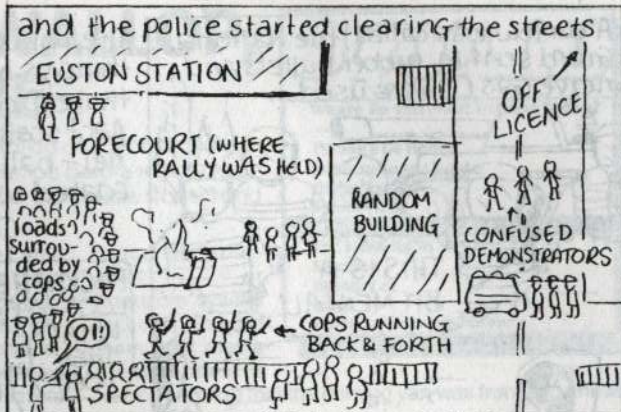 and the police started clearing the streets
EUSTON STATION
OFF
LICENCE
FORECOURT (WHERE
RALLY WAS HELD)
RANDOM
BUILDING
loads
surrou-
ded by
cops
CONFUSED
DEMONSTRATORS
OI!
COPS RUNNING
BACK & FORTH
SPECTATORS